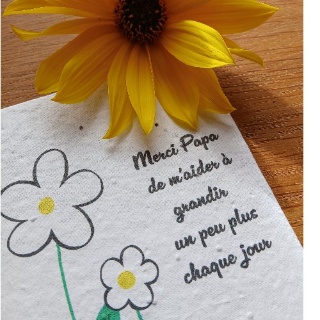 Merci Papa
de m'aider à
grandir
un peu plus
chaque jour